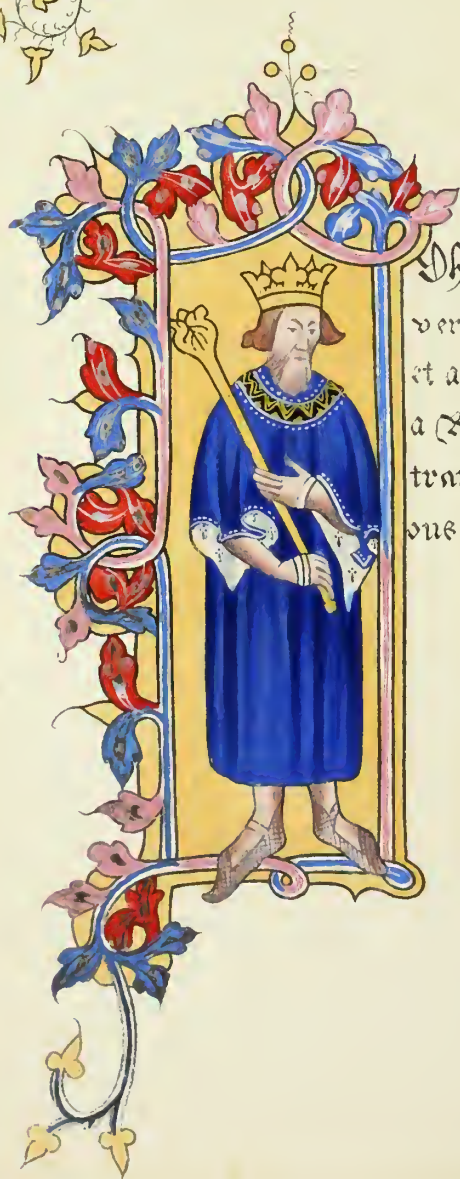 ver
et a
a R
tran
ous